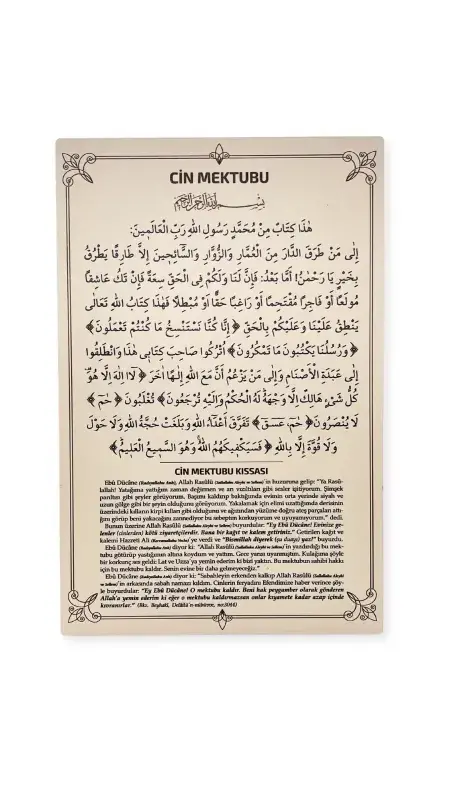 CİN MEKTUBU
بِسْمِ اللهِ الرَّحْمٰنِ الرَّحِيمِ
هٰذَا كِتَابٌ مِنْ مُحَمَّدٍ رَسُولِ اللهِ رَبِّ الْعَالَمِينَ:
إِلٰى مَنْ طَرَقَ الدَّارَ مِنَ الْعُمَّارِ وَالزُّوَّارِ وَالسَّائِحِينَ إِلَّا طَارِقًا يَطْرُقُ
بِخَيْرٍ يَا رَحْمٰنُ! أَمَّا بَعْدُ: فَإِنَّ لَنَا وَلَكُمْ فِى الْحَقِّ سِعَةً فَإِنْ تَكُ عَاشِقًا
مُولَعًا أَوْ فَاجِرًا مُقْتَحِمًا أَوْ رَاغِبًا حَقًّا أَوْ مُبْطِلًا فَهٰذَا كِتَابُ اللهِ تَعَالٰى
يَنْطِقُ عَلَيْنَا وَعَلَيْكُمْ بِالْحَقِّ ﴿إِنَّا كُنَّا نَسْتَنْسِخُ مَا كُنْتُمْ تَعْمَلُونَ﴾
﴿وَرُسُلُنَا يَكْتُبُونَ مَا تَمْكُرُونَ﴾ اُتْرُكُوا صَاحِبَ كِتَابِى هٰذَا وَانْطَلِقُوا
إِلٰى عَبَدَةِ الْأَصْنَامِ وَإِلٰى مَنْ يَزْعُمُ أَنَّ مَعَ اللهِ إِلٰهًا اٰخَرَ ﴿لَا اِلٰهَ إِلَّا هُوَ
كُلُّ شَيْءٍ هَالِكٌ إِلَّا وَجْهَهُ لَهُ الْحُكْمُ وَإِلَيْهِ تُرْجَعُونَ﴾ تُغْلَبُونَ ﴿حٰمٓ﴾
لَا يُنْصَرُونَ ﴿حٰمٓ، عٓسٓقٓ﴾ تَفَرَّقَ أَعْدَاءُ اللهِ وَبَلَغَتْ حُجَّةُ اللهِ وَلَا حَوْلَ
وَلَا قُوَّةَ إِلَّا بِاللهِ ﴿فَسَيَكْفِيكَهُمُ اللهُ وَهُوَ السَّمِيعُ الْعَلِيمُ﴾
CİN MEKTUBU KISSASI
Ebû Dücâne (Radıyallahu Anh), Allah Rasûlü (Sallallahu Aleyhi ve Sellem)'in huzuruna gelip: "Ya Rasû-
lallah! Yatağıma yattığım zaman değirmen ve arı vızıltıları gibi sesler işitiyorum. Şimşek
parıltısı gibi şeyler görüyorum. Başımı kaldırıp baktığında evimin orta yerinde siyah ve
uzun gölge gibi bir şeyin olduğunu görüyorum. Yakalamak için elimi uzattığında derisinin
üzerindeki kılların kirpi kılları gibi olduğunu ve ağzından yüzüme doğru ateş parçaları attı-
ğını görüp beni yakacağını zannediyor bu sebepten korkuyorum ve uyuyamıyorum." dedi.
Bunun üzerine Allah Rasûlü (Sallallahu Aleyhi ve Sellem) buyurdular: "Ey Ebû Dücâne! Evinize ge-
lenler (cinlerden) kötü ziyaretçilerdir. Bana bir kağıt ve kalem getiriniz." Getirilen kağıt ve
kalemi Hazreti Ali (Kerremallahu Veche)'ye verdi ve "Bismillah diyerek (şu duayı) yaz!" buyurdu.
Ebû Dücâne (Radıyallahu Anh) diyor ki: "Allah Rasûlü (Sallallahu Aleyhi ve Sellem)'in yazdırdığı bu mek-
tubu götürüp yastığımın altına koydum ve yattım. Gece yarısı uyanmıştım. Kulağıma şöyle
bir korkunç ses geldi: Lat ve Uzza'ya yemin ederim ki bizi yaktın. Bu mektubun sahibi hakkı
için bu mektubu kaldır. Senin evine bir daha gelmeyeceğiz."
Ebû Dücâne (Radıyallahu Anh) diyor ki: "Sabahleyin erkenden kalkıp Allah Rasûlü (Sallallahu Aleyhi
ve Sellem)'in arkasında sabah namazı kıldım. Cinlerin feryadını Efendimize haber verince şöy-
le buyurdular: "Ey Ebû Dücâne! O mektubu kaldır. Beni hak peygamber olarak gönderen
Allah'a yemin ederim ki eğer o mektubu kaldırmazsan onlar kıyamete kadar azap içinde
kavranırlar." (Bkz. Beyhakî, Delâilü'n-nübüvve, no:3014)